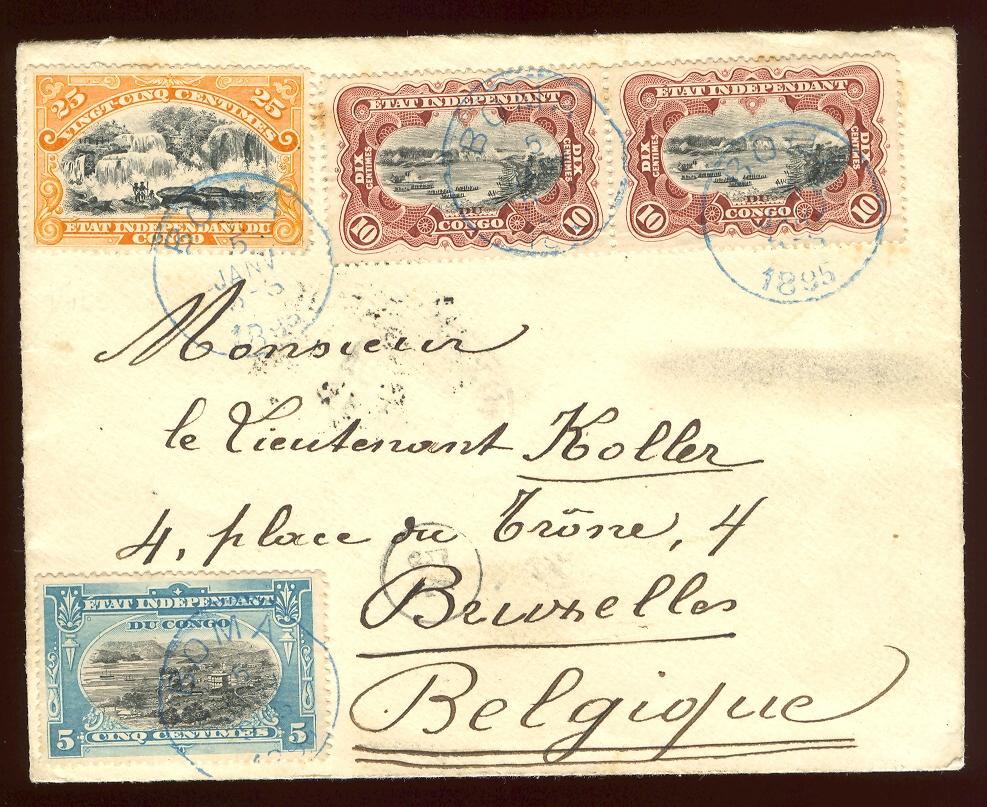 25 25
VINGT-CINQ CENTIMES
ETAT INDEPENDANT DU
CONGO
ETAT INDEPENDANT
DIX CENTIMES
DIX CENTIMES
DU
CONGO
10 10
ETAT INDEPENDANT
DIX CENTIMES
DIX CENTIMES
DU
CONGO
10 10
BOMA
5
JANV
1895
BOMA
5
BOMA
1895
Monsieur
le Lieutenant Koller
4, place du Trône, 4
Bruxelles
Belgique
ETAT INDEPENDANT
DU CONGO
5 CINQ CENTIMES 5
BOMA